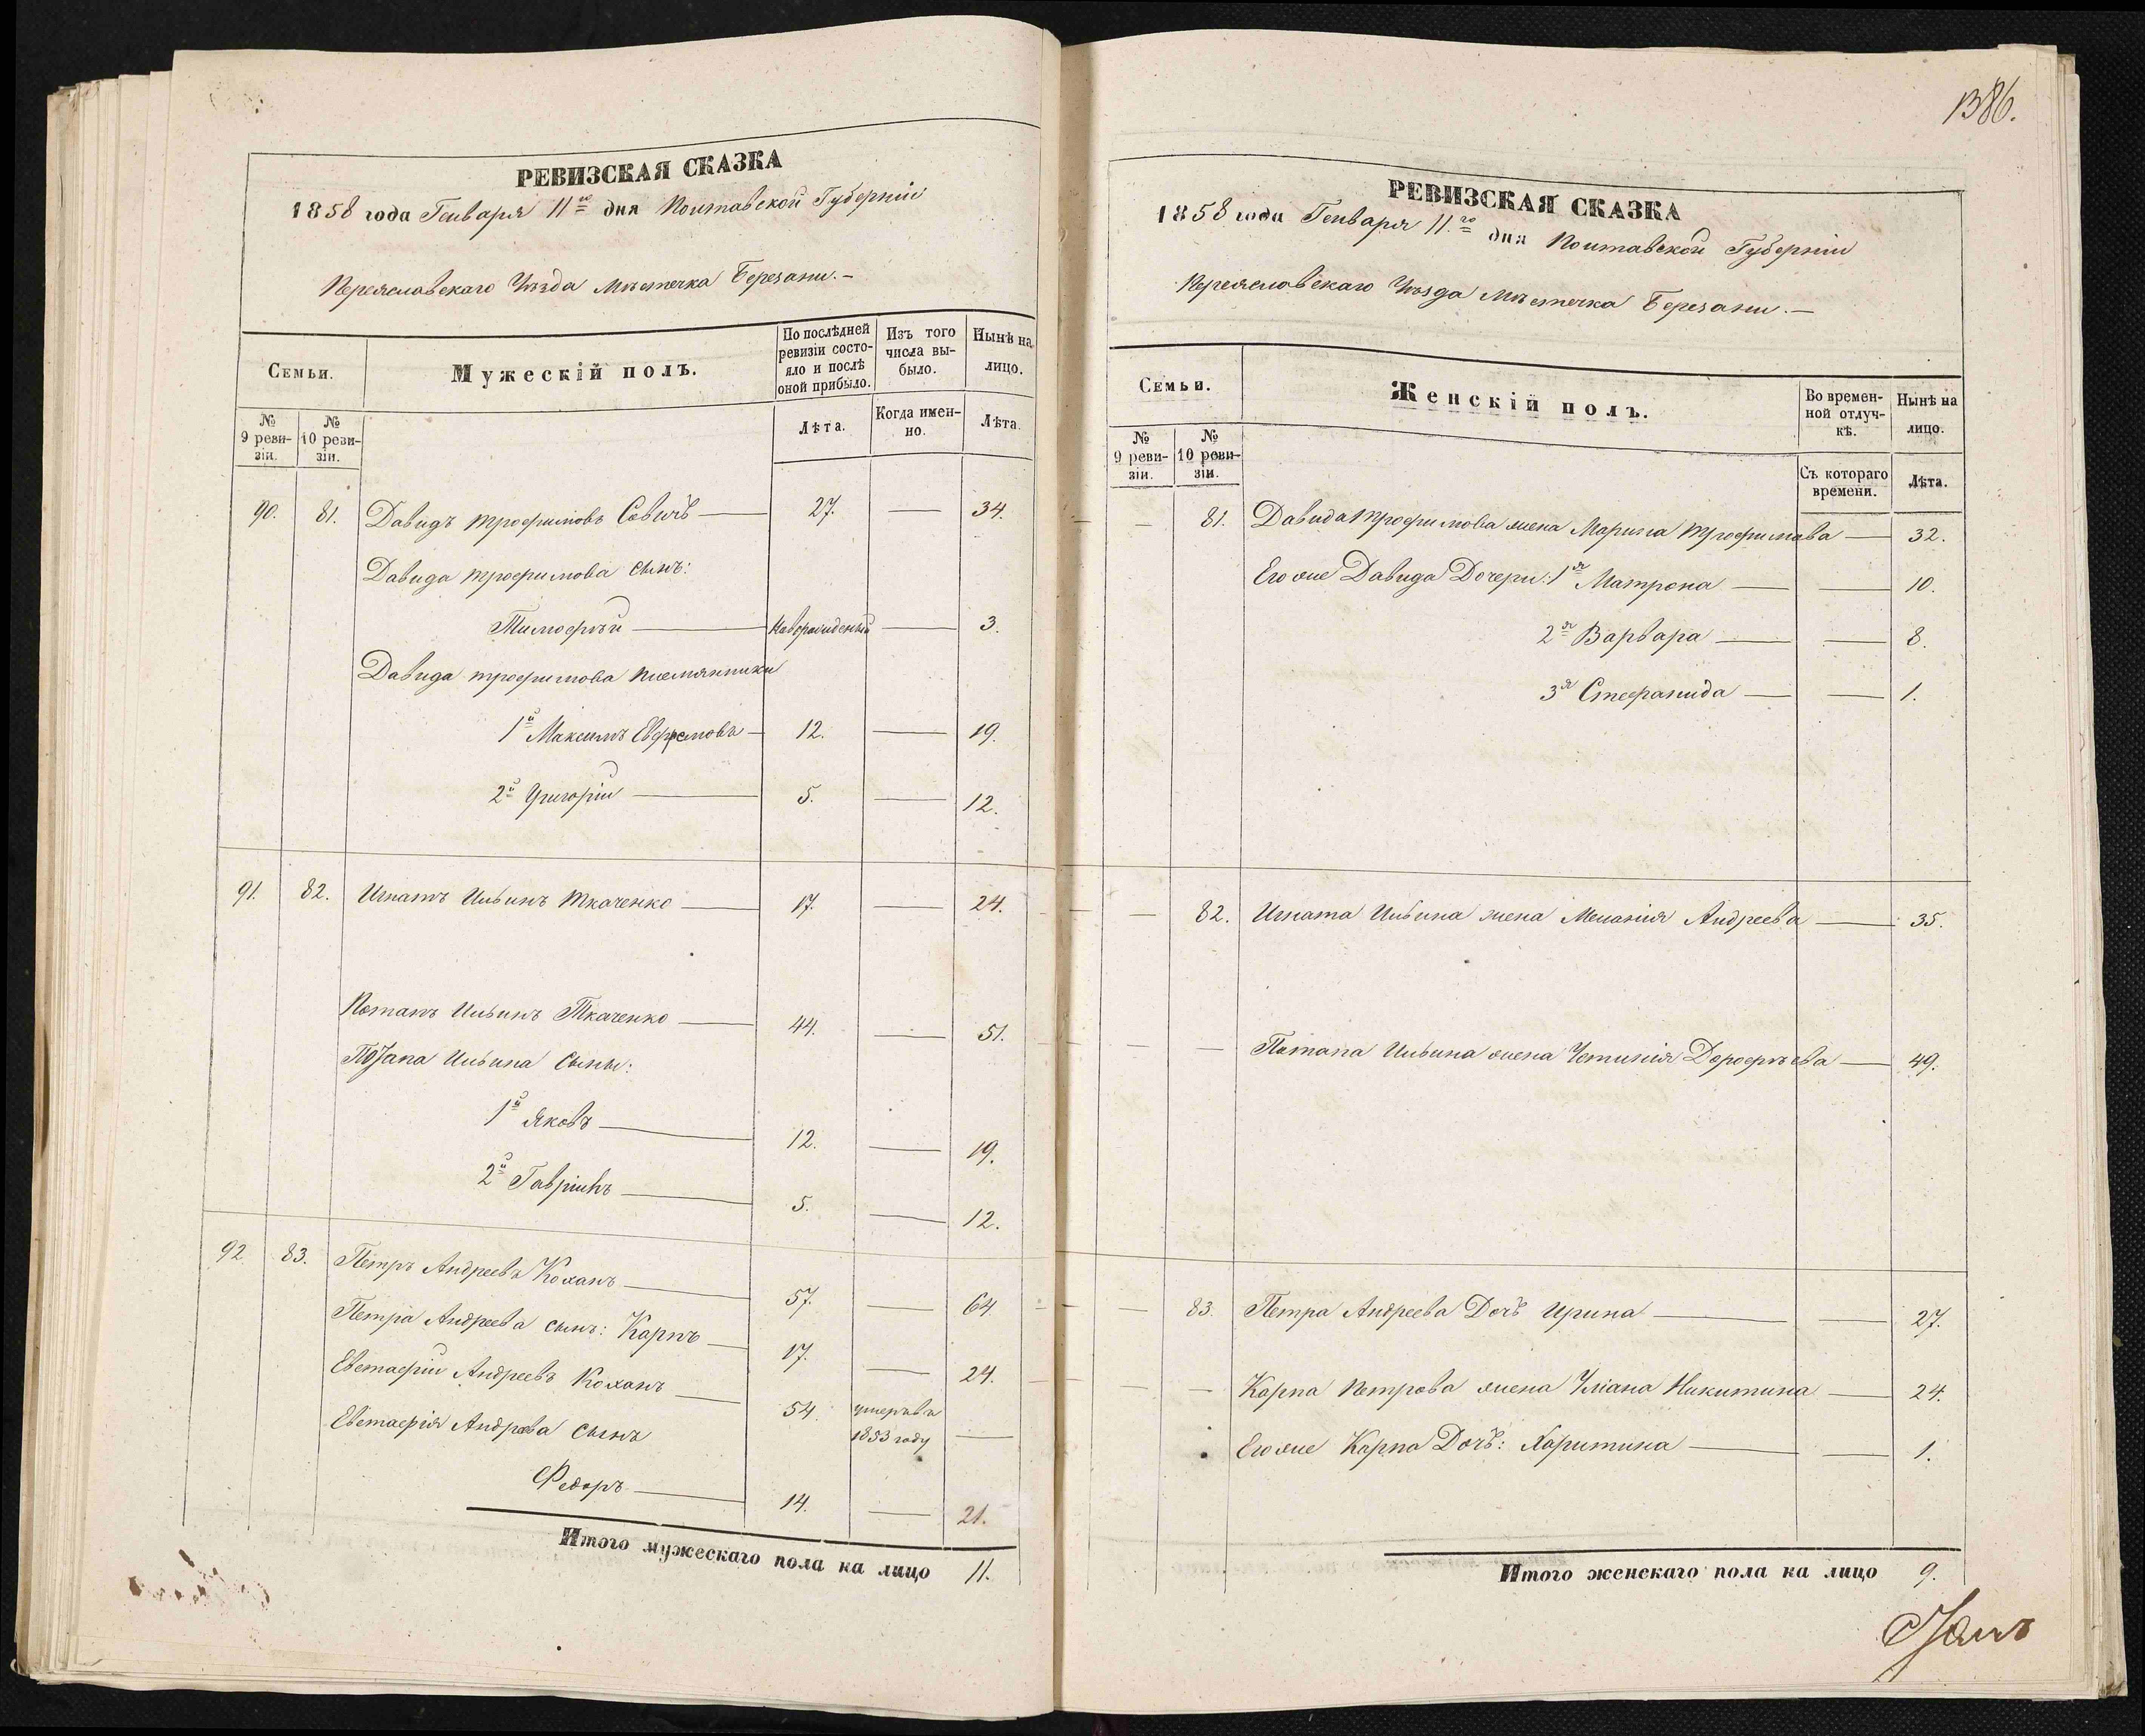 РЕВИЗСКАЯ СКАЗКА
1858 года Генваря 11го дня Полтавской Губерніи
Переяславскаго Уѣзда мѣстечка Березани.–
Семьи.
Мужескій полъ.
По послѣдней ревизіи состояло и послѣ оной прибыло.
Изъ того числа выбыло.
Нынѣ на лицо.
№ 9 ревизіи.
№ 10 ревизіи.
Лѣта.
Когда именно.
Лѣта.
90. 81. Давидъ Трофимовъ Савичъ — 27. — 34.
Давида Трофимова сынъ:
Тимофѣй — новорожденный — 3.
Давида Трофимова племянники
1й Максимъ Евфремовъ — 12. — 19.
2й Григорій — 5. — 12.
91. 82. Игнатъ Ильинъ Ткаченко — 17. — 24.
Потапъ Ильинъ Ткаченко — 44. — 51.
Потапа Ильина сыны:
1й Яковъ — 12. — 19.
2й Гавріилъ — 5. — 12.
92 83. Петръ Андреевъ Коханъ — 57. — 64.
Петра Андреева сынъ: Карпъ — 17. — 24.
Евстафій Андреевъ Коханъ — 54. умеръ въ 1853 году —
Евстафія Андреева сынъ
Федоръ — 14. — 21.
Итого мужескаго пола на лицо 11.
1386.
РЕВИЗСКАЯ СКАЗКА
1858 года Генваря 11.го дня Полтавской Губерніи
Переяславскаго Уѣзда мѣстечка Березани.–
Семьи.
Женскій полъ.
Во временной отлучкѣ.
Нынѣ на лицо.
№ 9 ревизіи.
№ 10 ревизіи.
Съ котораго времени.
Лѣта.
— 81. Давида Трофимова жена Марина Трофимова — 32.
Его же Давида Дочери: 1я Матрона — — 10.
2я Варвара — — 8.
3я Стефанида — — 1.
— 82. Игната Ильина жена Меланія Андреева — 35.
— — Потапа Ильина жена Устинія Дорофѣева — 49.
— 83. Петра Андреева Дочь Ирина — — 27.
— — Карпа Петрова жена Уліана Никитина — 24.
Его же Карпа Дочь: Харитина — — 1.
Итого женскаго пола на лицо 9.